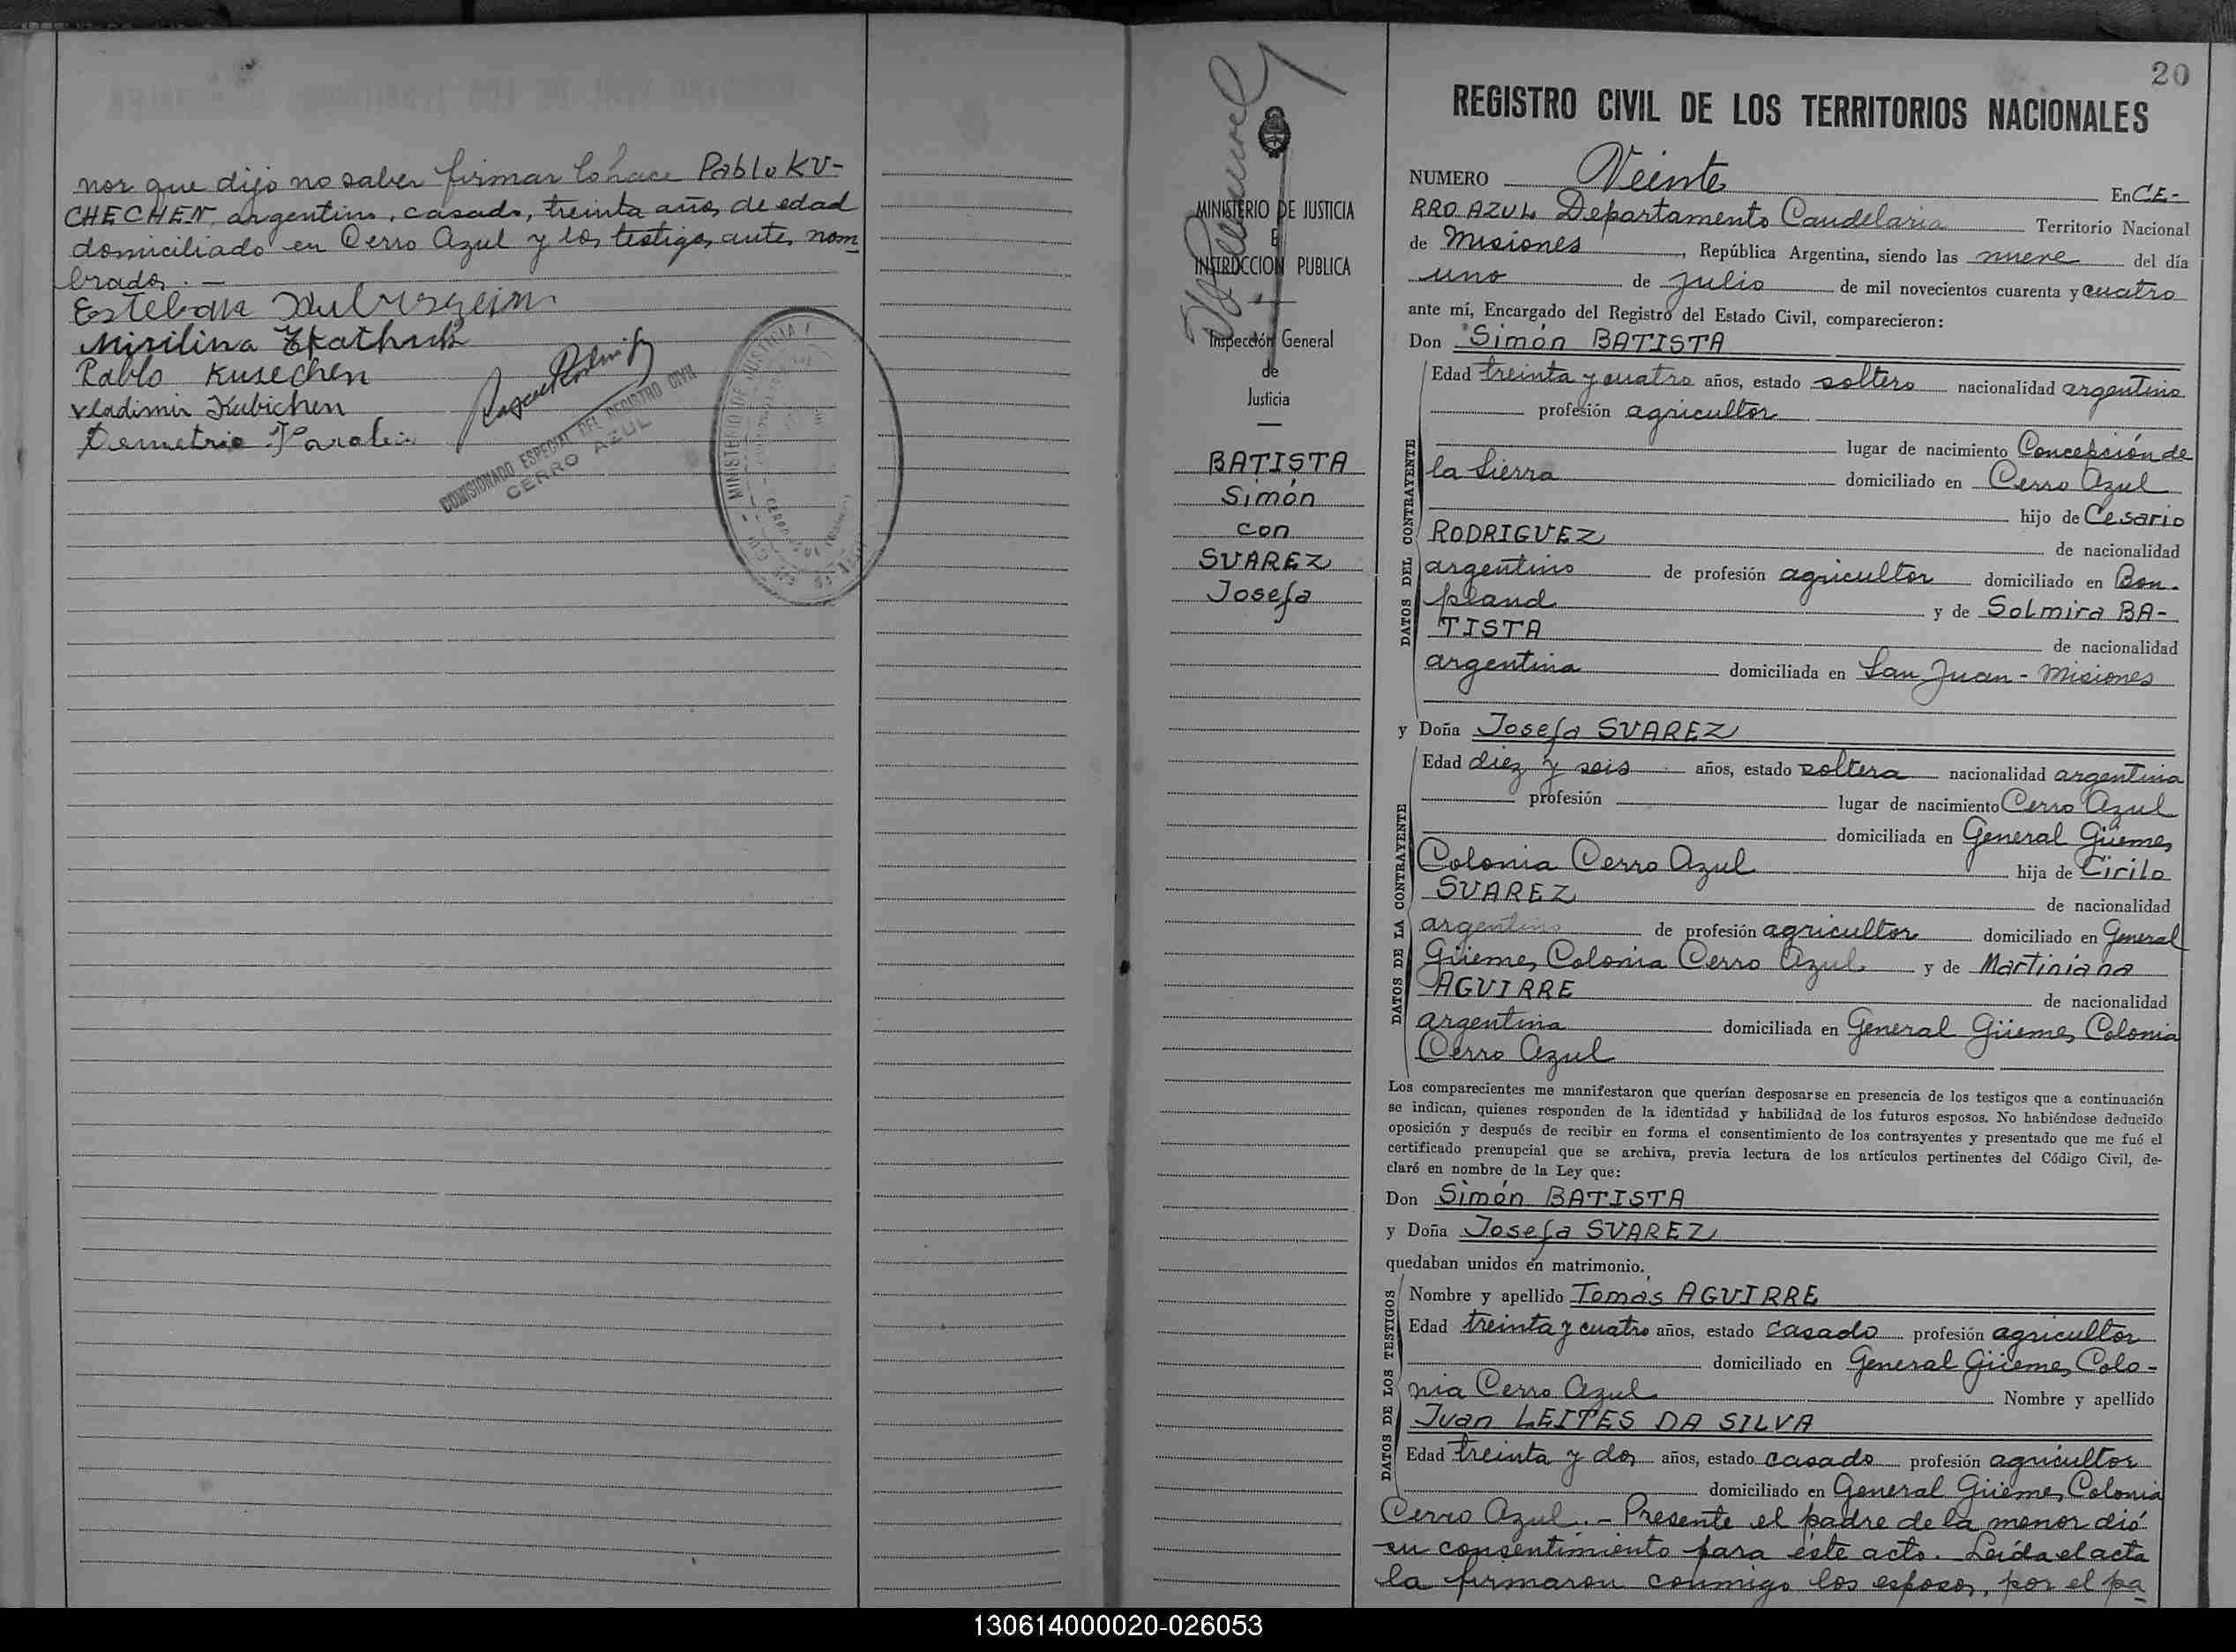 nor que dijo no saber firmar lo hace Pablo KU-
CHECHEN, argentino, casado, treinta años de edad
domiciliado en Cerro Azul y los testigos antes nom
brados. —
Esteban
Misilina
Pablo Kusechen
Vladimir Kubichen
Demetrio
COMISIONADO ESPECIAL DEL REGISTRO CIVIL
CERRO AZUL
MINISTERIO DE JUSTICIA
20
MINISTERIO DE JUSTICIA
E
INSTRUCCION PUBLICA
Inspección General
de
Justicia
BATISTA
Simón
con
SUAREZ
Josefa
REGISTRO CIVIL DE LOS TERRITORIOS NACIONALES
NUMERO Veinte En CE-
RRO AZUL Departamento Candelaria Territorio Nacional
de Misiones, República Argentina, siendo las nueve del día
uno de Julio de mil novecientos cuarenta y cuatro
ante mí, Encargado del Registro del Estado Civil, comparecieron:
Don Simón BATISTA
Edad treinta y cuatro años, estado soltero nacionalidad argentino
profesión agricultor
lugar de nacimiento Concepción de
la Sierra domiciliado en Cerro Azul
hijo de Cesario
RODRIGUEZ de nacionalidad
argentino de profesión agricultor domiciliado en Bon-
pland y de Solmira BA-
TISTA de nacionalidad
argentina domiciliada en San Juan - Misiones
DATOS DEL CONTRAYENTE
y Doña Josefa SUAREZ
Edad diez y seis años, estado soltera nacionalidad argentina
profesión lugar de nacimiento Cerro Azul
domiciliada en General Güemes
Colonia Cerro Azul hija de Cirilo
SUAREZ de nacionalidad
argentino de profesión agricultor domiciliado en General
Güemes Colonia Cerro Azul y de Martiniana
AGUIRRE de nacionalidad
argentina domiciliada en General Güemes Colonia
Cerro Azul
DATOS DE LA CONTRAYENTE
Los comparecientes me manifestaron que querían desposarse en presencia de los testigos que a continuación
se indican, quienes responden de la identidad y habilidad de los futuros esposos. No habiéndose deducido
oposición y después de recibir en forma el consentimiento de los contrayentes y presentado que me fué el
certificado prenupcial que se archiva, previa lectura de los artículos pertinentes del Código Civil, de-
claré en nombre de la Ley que:
Don Simón BATISTA
y Doña Josefa SUAREZ
quedaban unidos en matrimonio.
Nombre y apellido Tomás AGUIRRE
Edad treinta y cuatro años, estado casado profesión agricultor
domiciliado en General Güemes Colo-
nia Cerro Azul Nombre y apellido
Juan LEITES DA SILVA
Edad treinta y dos años, estado casado profesión agricultor
domiciliado en General Güemes Colonia
DATOS DE LOS TESTIGOS
Cerro Azul. - Presente el padre de la menor dió
su consentimiento para este acto. Leída el acta
la firmaron conmigo los esposos, por el pa
130614000020-026053